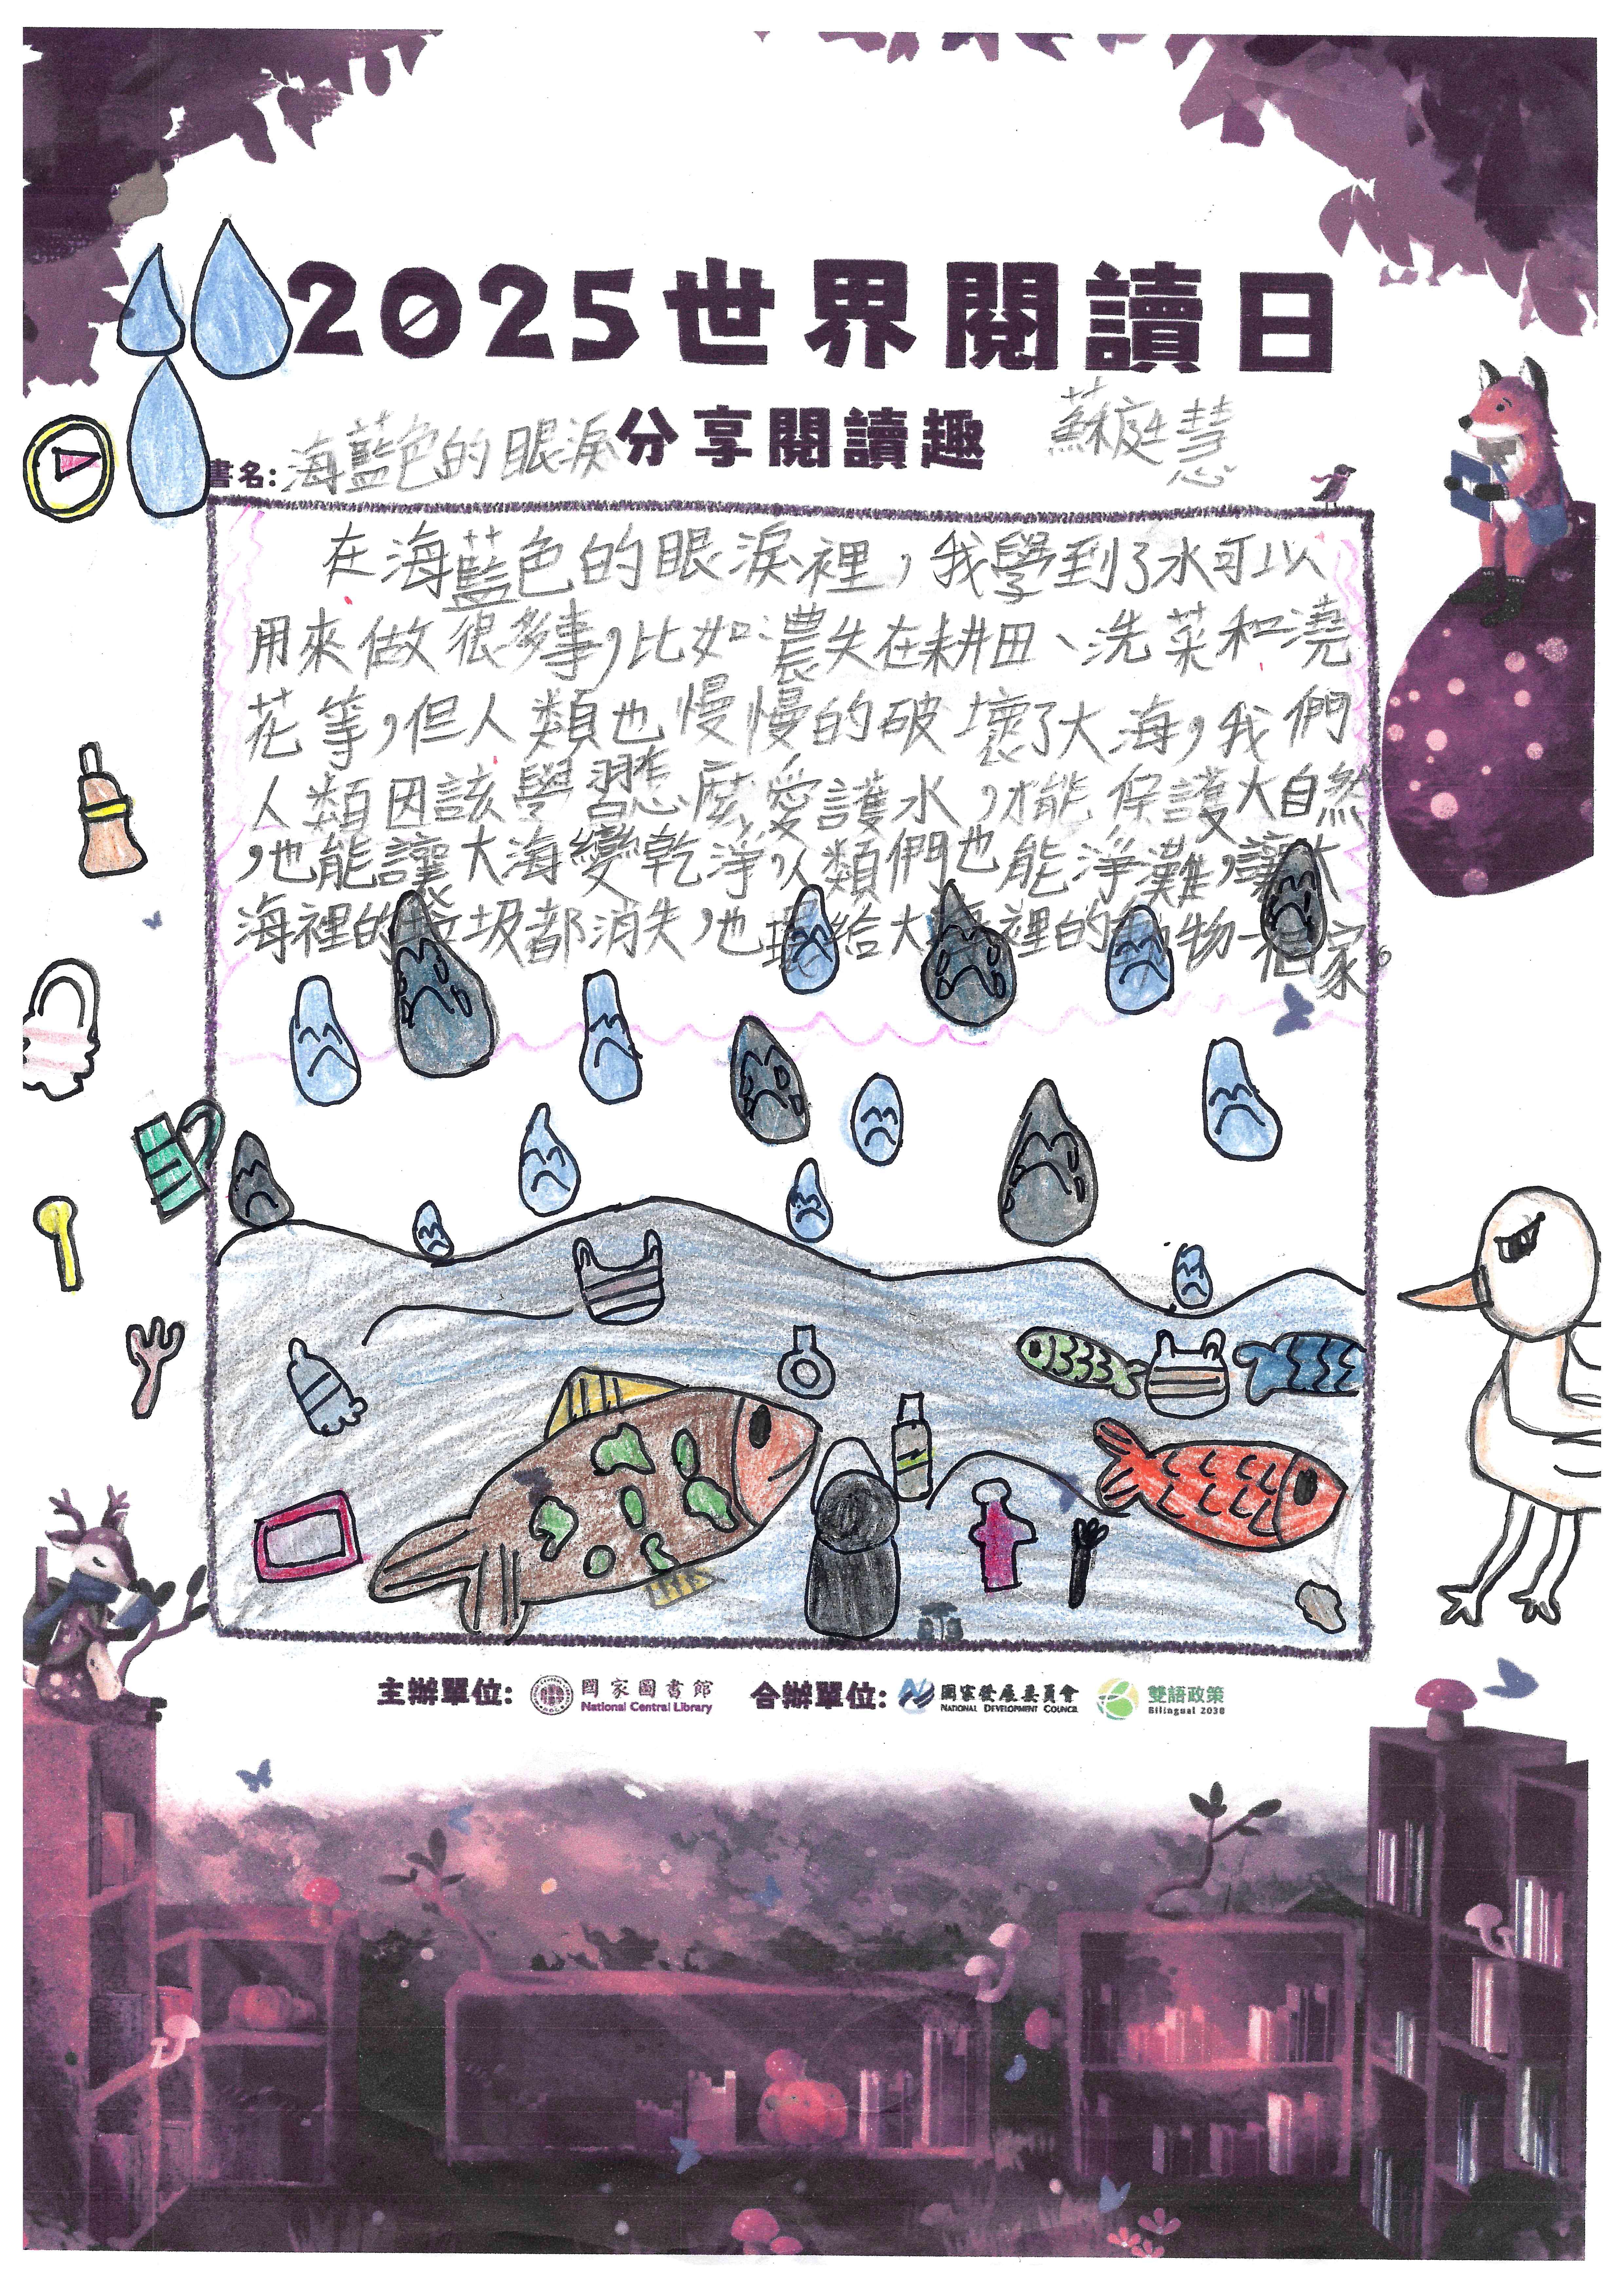 2025世界閱讀日
分享閱讀趣
書名:海藍色的眼淚
蘇庭慧
在海藍色的眼淚裡，我學到了水可以
用來做很多事，比如濃失在耕田、洗菜和澆
花等，但人類也慢慢的破壞了大海，我們
人類因該學習怎麼愛護水，才能保護大自然
，也能讓大海變乾淨，人類們也能淨灘，讓大
海裡的垃圾都消失，也還給大海裡的動物一個家。
主辦單位: 國家圖書館 National Central Library 合辦單位: 國家發展委員會 National Development Council 雙語政策 Bilingual 2030